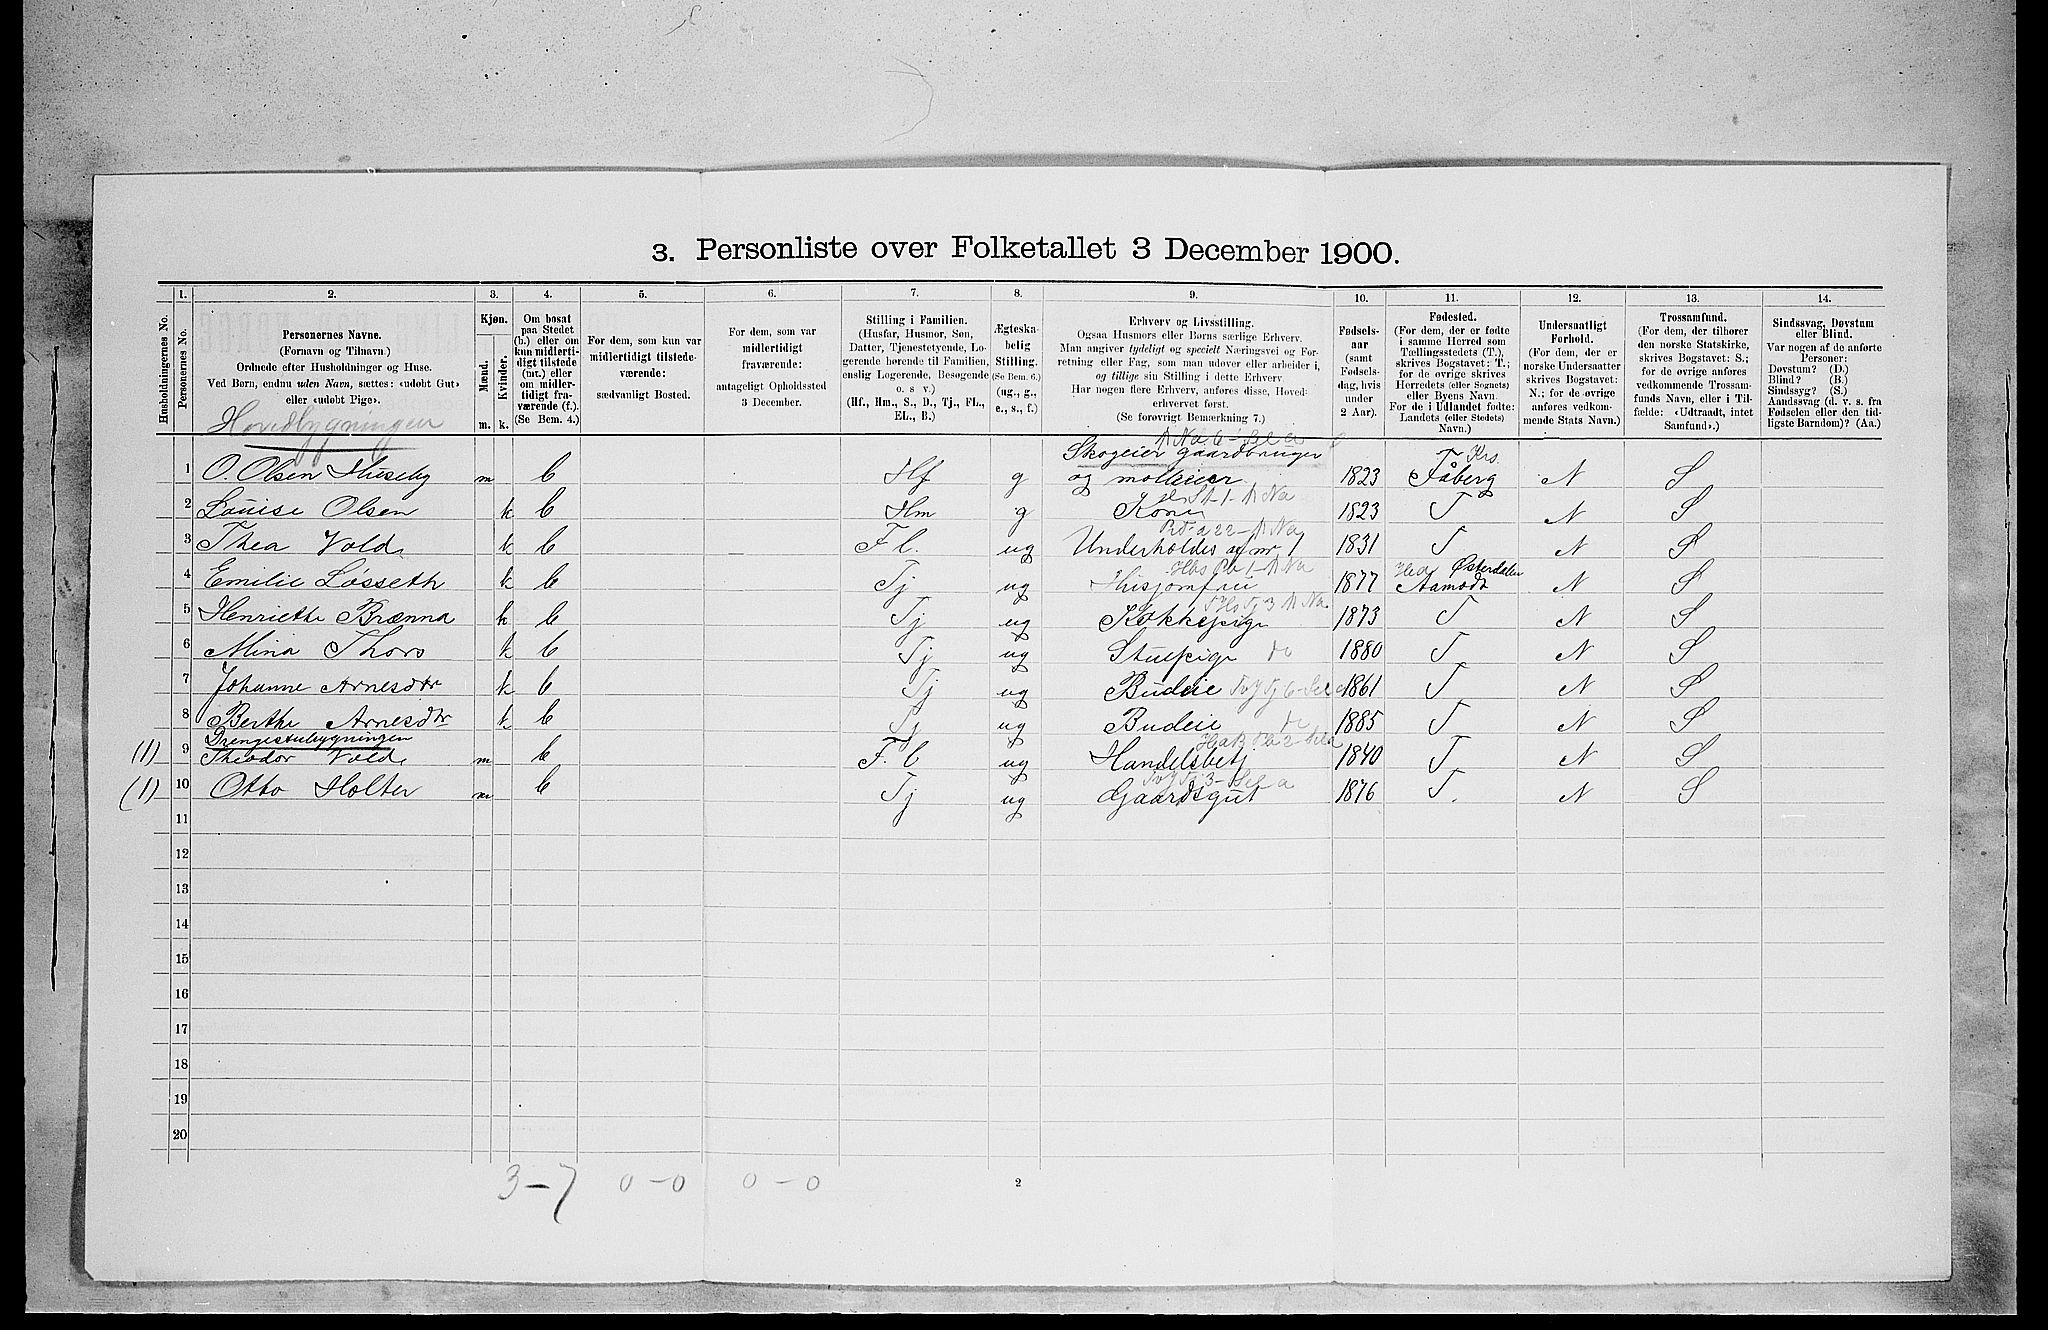 3. Personliste over Folketallet 3 December 1900.
Husholdningernes No.
1. Personernes No.
2. Personernes Navne.
(Fornavn og Tilnavn.)
Ordnede efter Husholdninger og Huse.
Ved Børn, endnu uden Navn, sættes: «udøbt Gut»
eller «udøbt Pige».
3. Kjøn.
Mænd. Kvinder.
m. k.
4. Om bosat
paa Stedet
(b.) eller om
kun midlerti-
digt tilstede
(mt.) eller
om midler-
tidigt fra-
værende (f.).
(Se Bem. 4.)
5. For dem, som kun var
midlertidigt tilstede-
værende:
sædvanligt Bosted.
6. For dem, som var
midlertidigt
fraværende:
antageligt Opholdssted
3 December.
7. Stilling i Familien.
(Husfar, Husmor, Søn,
Datter, Tjenestetyende, Lo-
gerende hørende til Familien,
enslig Logerende, Besøgende
o. s v.)
(Hf., Hm., S., D., Tj., FL.,
EL., B.)
8. Ægteska-
belig
Stilling.
(Se Bem. 6.)
(ug., g.,
e., s., f.)
9. Erhverv og Livsstilling.
Ogsaa Husmors eller Børns særlige Erhverv.
Man angiver tydeligt og specielt Næringsvei og For-
retning eller Fag, som man udøver eller arbeider i,
og tillige sin Stilling i dette Erhverv.
Har nogen flere Erhverv, anføres disse, Hoved-
erhvervet først.
(Se forøvrigt Bemærkning 7.)
10. Fødsels-
aar
(samt
Fødsels-
dag, hvis
under
2 Aar).
11. Fødested.
(For dem, der er fødte
i samme Herred som
Tællingsstedets (T.),
skrives Bogstavet: T.;
for de øvrige skrives
Herredets (eller Sognets)
eller Byens Navn.
For de i Udlandet fødte:
Landets (eller Stedets)
Navn.)
12. Undersaatligt
Forhold.
(For dem, der er
norske Undersaatter
skrives Bogstavet:
N.; for de øvrige
anføres vedkom-
mende Stats Navn.)
13. Trossamfund.
(For dem, der tilhører
den norske Statskirke,
skrives Bogstavet: S.;
for de øvrige anføres
vedkommende Trossam-
funds Navn, eller i Til-
fælde: «Udtraadt, intet
Samfund».)
14. Sindssvag, Døvstum
eller Blind.
Var nogen af de anførte
Personer:
Døvstum? (D.)
Blind? (B.)
Sindssyg? (S.)
Aandssvag (d. v. s. fra
Fødselen eller den tid-
ligste Barndom)? (Aa.)
Hovedbygningen
Skogeier gaardbruger
1 O. Olsen Huseby m b Hf g og molleeier 1823 Fåberg N S
2 Louise Olsen k b Hm g Kone 1823 T N S
3 Thea Vold k b F l. ug Underholdes af nr 1 1831 T N S
Østerdalen
4 Emilie Løsseth k b Tj ug Husjomfru 1877 Aamodt N S
5 Henriethe Brænna k b Tj ug Kokkepige 1873 T N S
6 Mina Thors k b Tj ug Stuepige do 1880 T N S
7 Johanne Arnesdtr k b Tj ug Budeie 1861 T N S
8 Berthe Arnesdtr k b Tj ug Budeie do 1885 T N S
Drengestubygningen
(1) 9 Theodor Vold m b F. l ug Handelsbetj 1840 T N S
(1) 10 Otto Holter m b Tj ug Gaardsgut 1876 T. N S
11
12
13
14
15
16
17
18
19
20
3-7 0-0 0-0
2